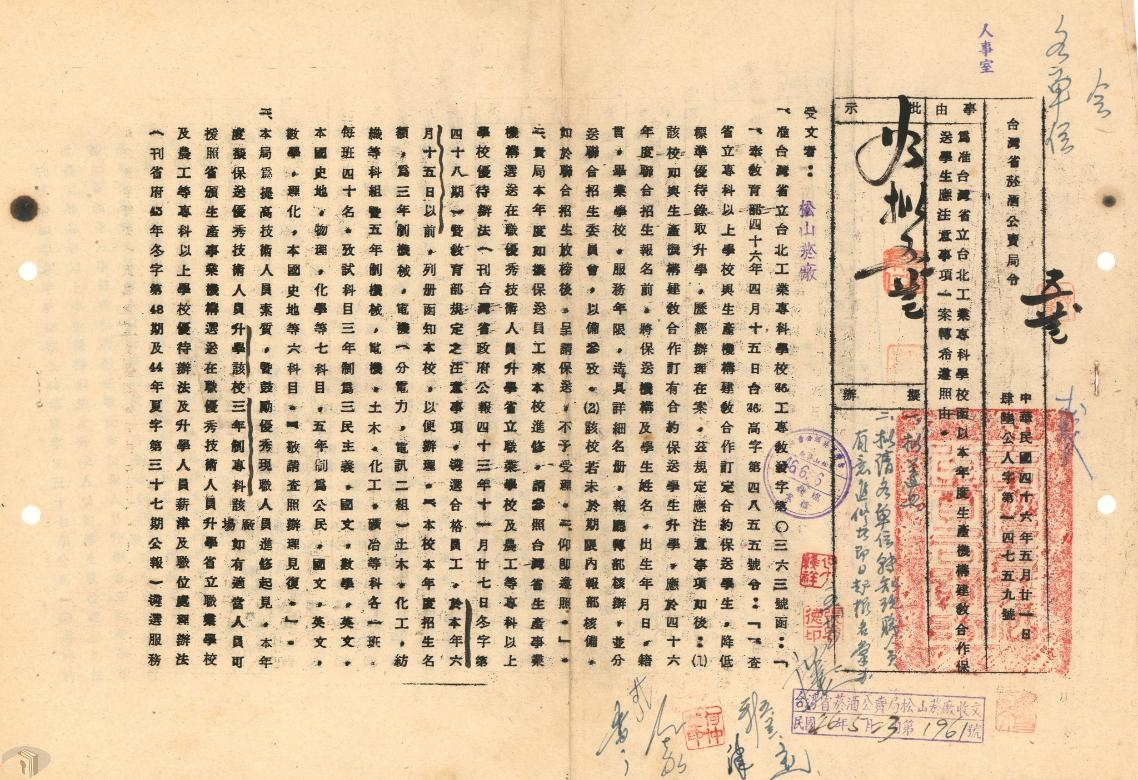 各單位
人事室
台灣省菸酒公賣局令
中華民國四十六年五月廿一日
肆陸公人字第一四七五九號
事由
為准台灣省立台北工業專科學校函以本年度生產機構建教合作保
送學生應注意事項一案轉希遵照由。
批示
擬辦
受文者：松山菸廠
一、准台灣省立台北工業專科學校46工專北教發字第〇三六三號函：「
一、奉教育部四十六年四月十五日台46高字第四八五五號令：「一查
省立專科以上學校與生產機構建教合作訂定合約保送學生，降低
標準優待錄取升學，歷經辦理在案。茲規定應注意事項如後：(1)
該校如與生產機構建教合作訂有合約保送學生升學，應於四十六
年度聯合招生報名前，將保送機構及學生姓名，出生年月日，籍
貫，畢業學校，服務年限，造具詳細名册，報廳轉部核辦，並分
送聯合招生委員會，以備參攷。(2)該校若未於期限內報部核備，
如於聯合招生放榜後，呈請保送，不予受理。一仰即遵照。」
二、貴局本年度如擬保送員工來本校進修，請參照台灣省生產事業
機構選送在職優秀技術人員升學省立職業學校及農工等專科以上
學校優待辦法（刊台灣省政府公報四十三年十一月廿七日冬字第
四十八期）暨教育部規定之注意事項，遴選合格員工，於本年六
月十五日以前，列册函知本校，以便辦理。三、本校本年度招生名
額，為三年制機械，電機（分電力，電訊二組）土木，化工，紡
織等科組暨五年制機械，電機，土木，化工，礦冶等科各一班，
每班四十名。攷試科目三年制為三民主義，國文，數學，英文，
本國史地，物理，化學等七科目，五年制為公民，國文，英文，
數學，理化，本國史地等六科目。一敬請查照辦理見復。」
二、本局為提高技術人員素質，暨鼓勵優秀現職人員進修起見，本年
度擬保送優秀技術人員升學該校三年制專科該廠場如有適當人員可
援照省頒生產事業機構選送在職優秀技術人員升學省立職業學校
及農工等專科以上學校優待辦法及升學人員薪津及職位處理辦法
（刊省府43年冬字第48期及44年夏字第三十七期公報）遴選服務
台灣省菸酒公賣局松山菸廠收文
民國46年5月23日第1961號